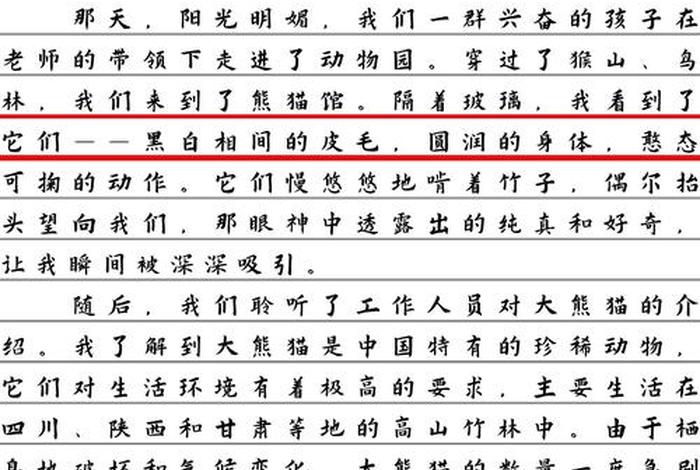 那天，阳光明媚，我们一群兴奋的孩子在
老师的带领下走进了动物园。穿过了猴山、鸟
林，我们来到了熊猫馆。隔着玻璃，我看到了
它们——黑白相间的皮毛，圆润的身体，憨态
可掬的动作。它们慢悠悠地啃着竹子，偶尔抬
头望向我们，那眼神中透露出的纯真和好奇，
让我瞬间被深深吸引。
随后，我们聆听了工作人员对大熊猫的介
绍。我了解到大熊猫是中国特有的珍稀动物，
它们对生活环境有着极高的要求，主要生活在
四川、陕西和甘肃等地的高山竹林中。由于栖
息地破坏和气候变化，大熊猫的数量一度急剧